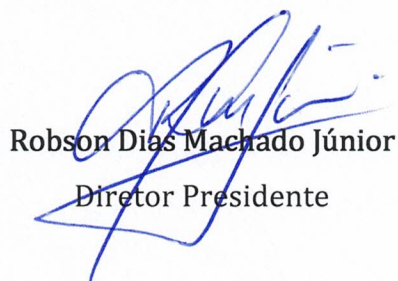 Robson Dias Machado Júnior
Diretor Presidente